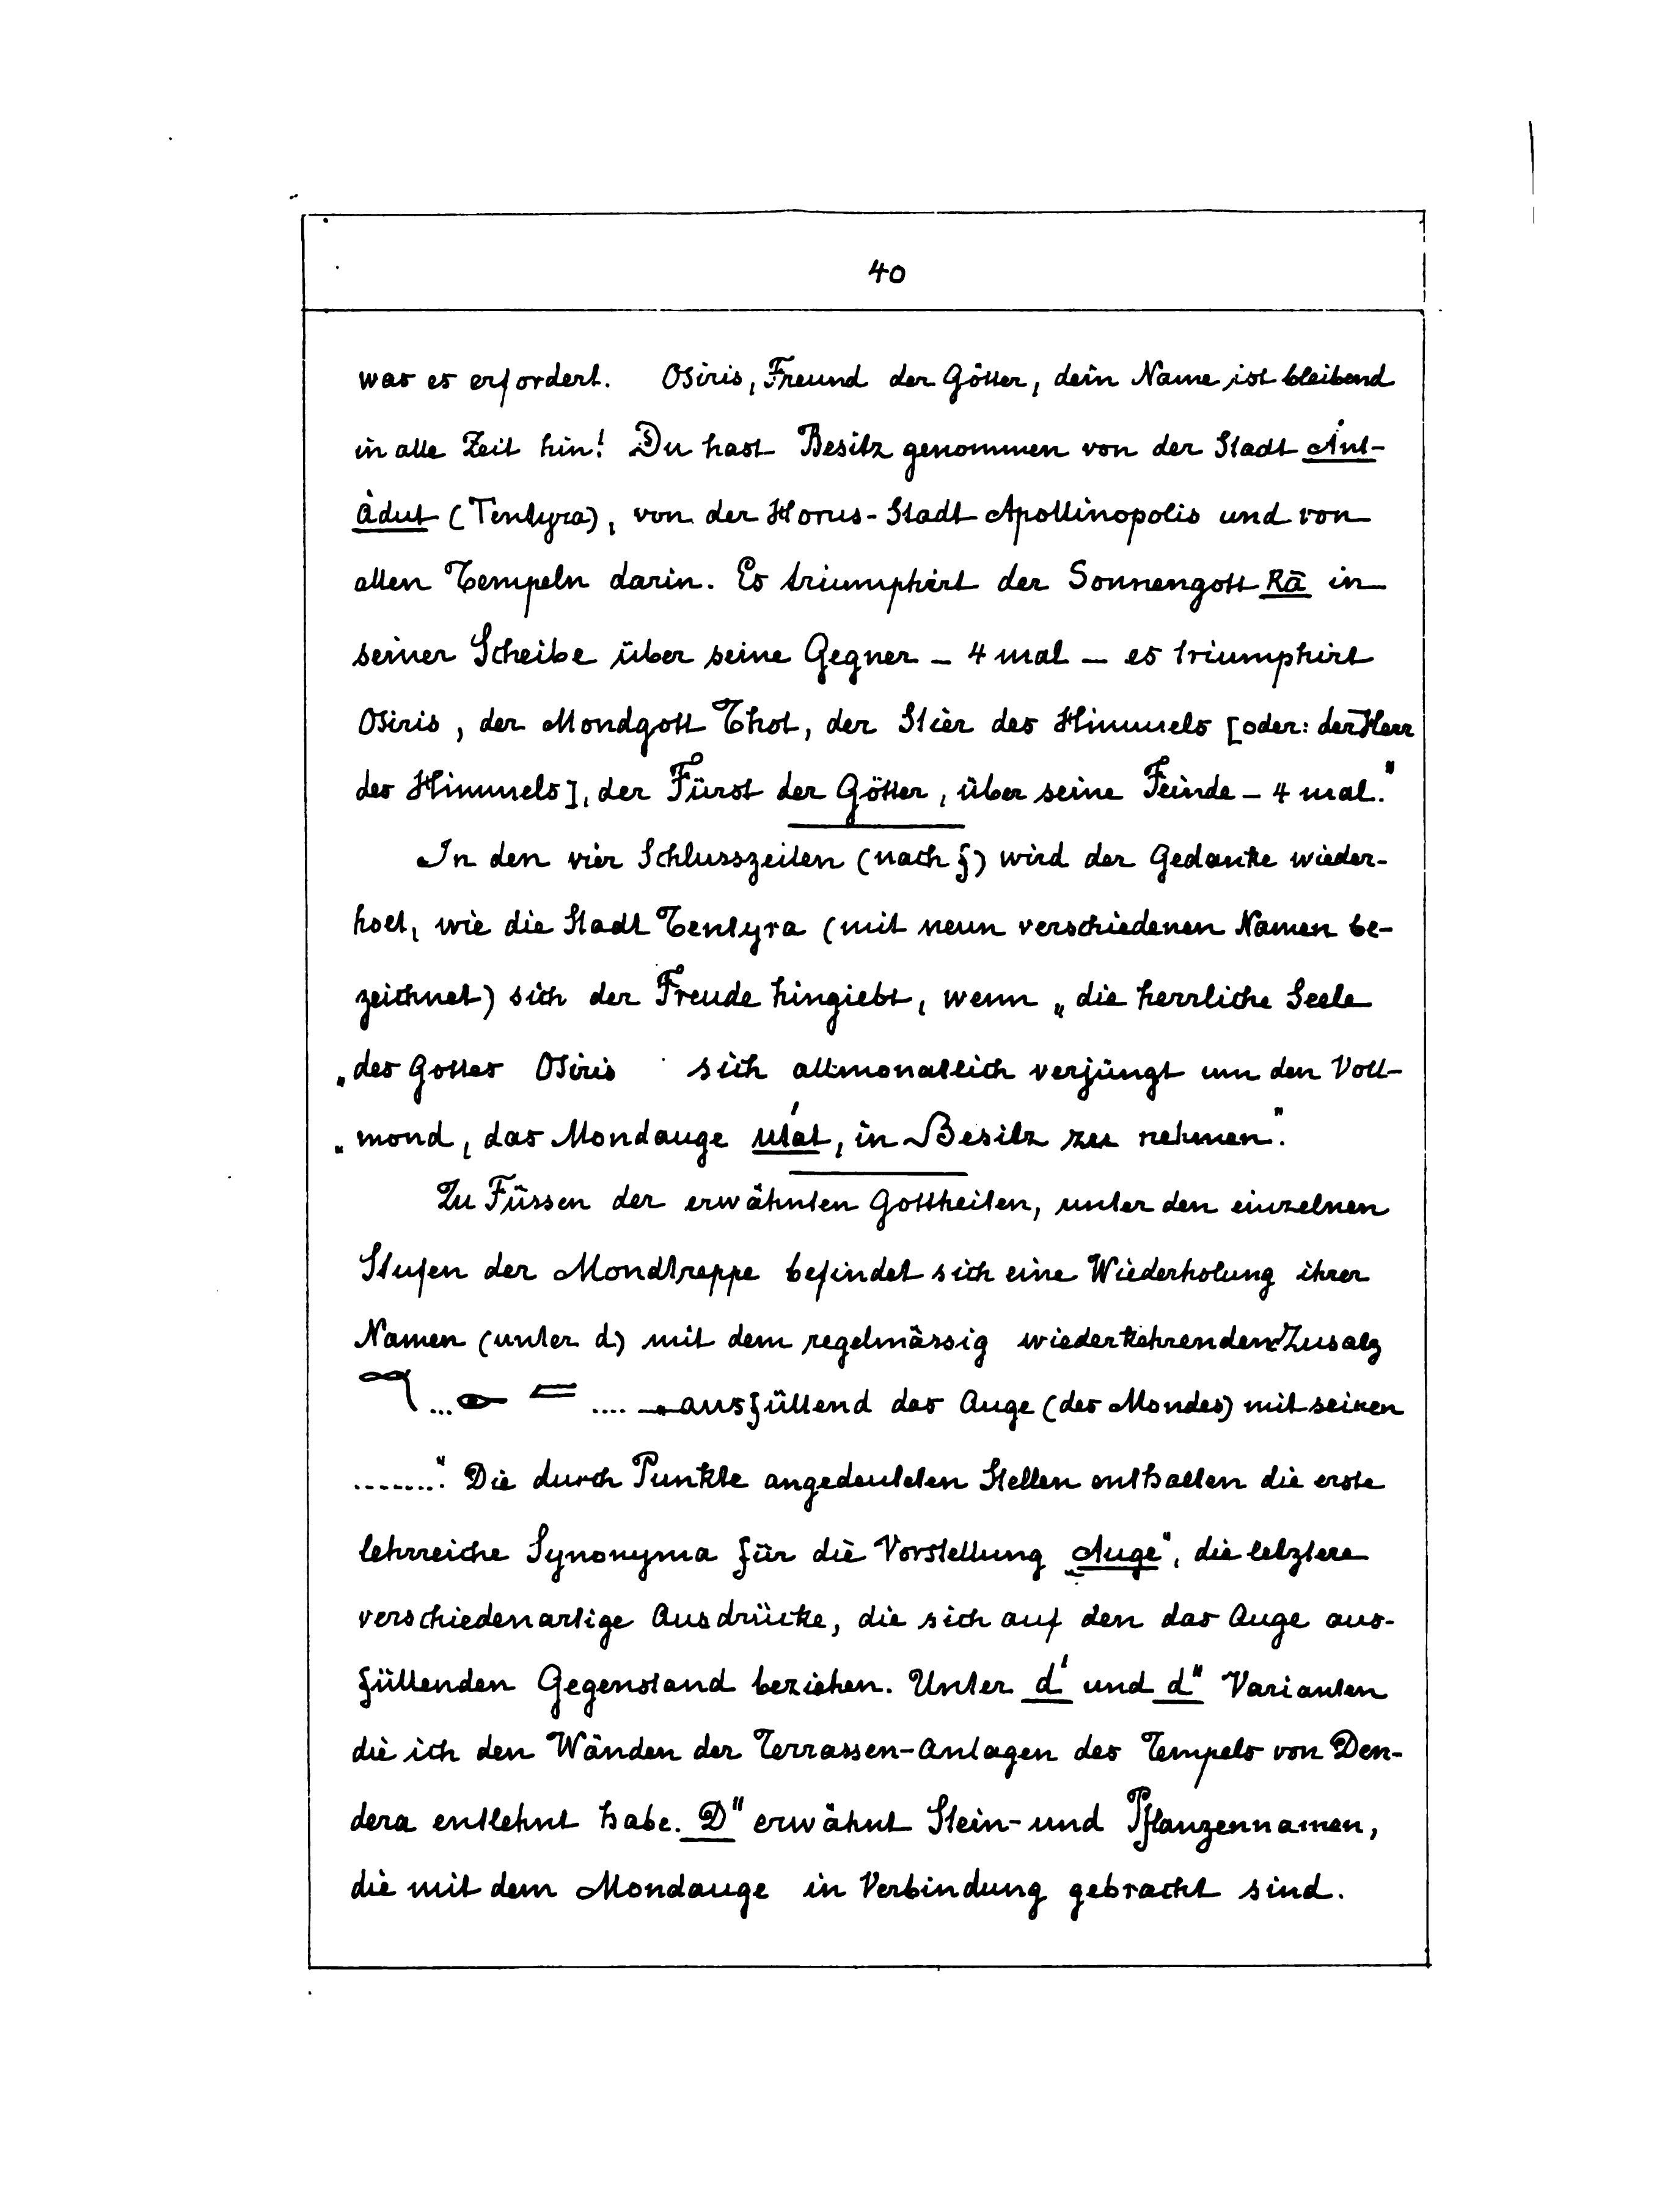 40
was es erfordert. Osiris, Freund der Götter, dein Name ist bleibend
in alle Zeit hin! Du hast Besitz genommen von der Stadt Ȧnt-
ȧdut (Tentyra), von der Horus-Stadt Apollinopolis und von
allen Tempeln darin. Es triumphirt der Sonnengott Rā in
seiner Scheibe über seine Gegner – 4 mal – es triumphirt
Osiris, der Mondgott Thot, der Stier des Himmels [oder: der Herr
des Himmels], der Fürst der Götter, über seine Feinde – 4 mal."
In den vier Schlusszeilen (nach f) wird der Gedanke wieder-
holt, wie die Stadt Tentyra (mit neun verschiedenen Namen be-
zeichnet) sich der Freude hingiebt, wenn „die herrliche Seele
„des Gottes Osiris sich allmonatlich verjüngt um den Voll-
„mond, das Mondauge utát, in Besitz zu nehmen".
Zu Füssen der erwähnten Gottheiten, unter den einzelnen
Stufen der Mondtreppe befindet sich eine Wiederholung ihrer
Namen (unter d) mit dem regelmässig wiederkehrenden Zusatz
... .... „ausfüllend das Auge (des Mondes) mit seinen
........". Die durch Punkte angedeuteten Stellen enthalten die erste
lehrreiche Synonyma für die Vorstellung „Auge", die letztere
verschiedenartige Ausdrücke, die sich auf den das Auge aus-
füllenden Gegenstand beziehen. Unter d' und d" Varianten
die ich den Wänden der Terrassen-Anlagen des Tempels von Den-
dera entlehnt habe. D" erwähnt Stein- und Pflanzennamen,
die mit dem Mondauge in Verbindung gebracht sind.